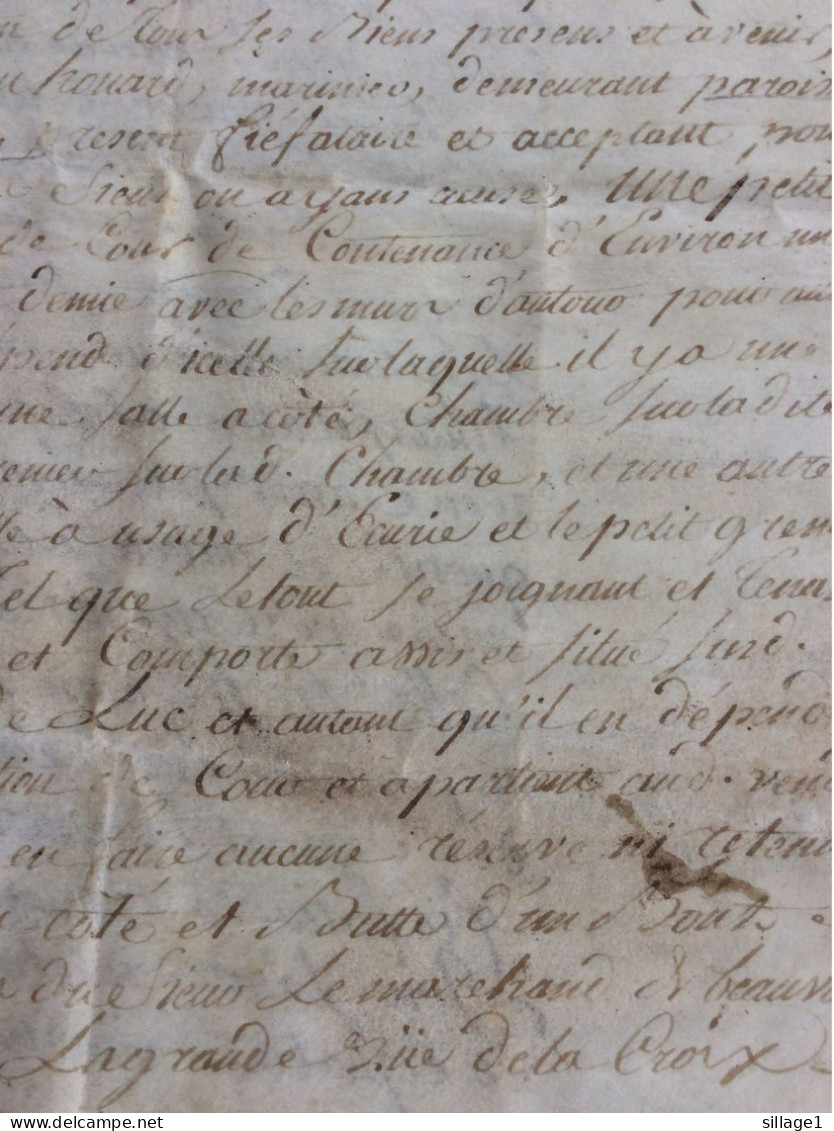 de Tous ses Biens présens et àvenir,
houard, marinier, demeurant parois
present fiéfataire et acceptant pou
Sieur ou ayans cause, une petit
de Cour de Contenance d'Environ un
demie avec les murs d'autour pour au
épend d'icelle sur laquelle il y a une
une Salle acôté, Chambre sur ladite
renier sur lad. Chambre, et une autre
lle à usage d'Ecurie et le petit gren
tel que le tout se joignant et Tena
et Comporte assis et situé sur d.
de Luc et autant qu'il en dépend
tion de Cour et apartient aud. ven
en faire aucune réserve ni reten
coté et Butte d'un Bout
du Sieur Le marchand de beauv
La grande Rüe de la Croix
sillage1